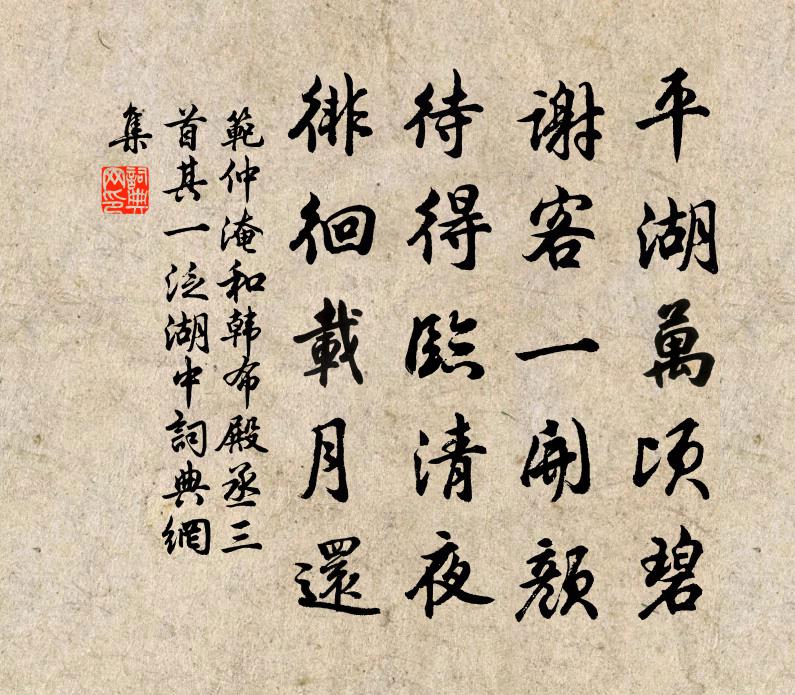 平湖萬頃碧
謝客一開顏
待得臨清夜
徘徊載月還
範仲淹和韩布殿丞三
首其一泛湖中詞典網
集
詞典
网印